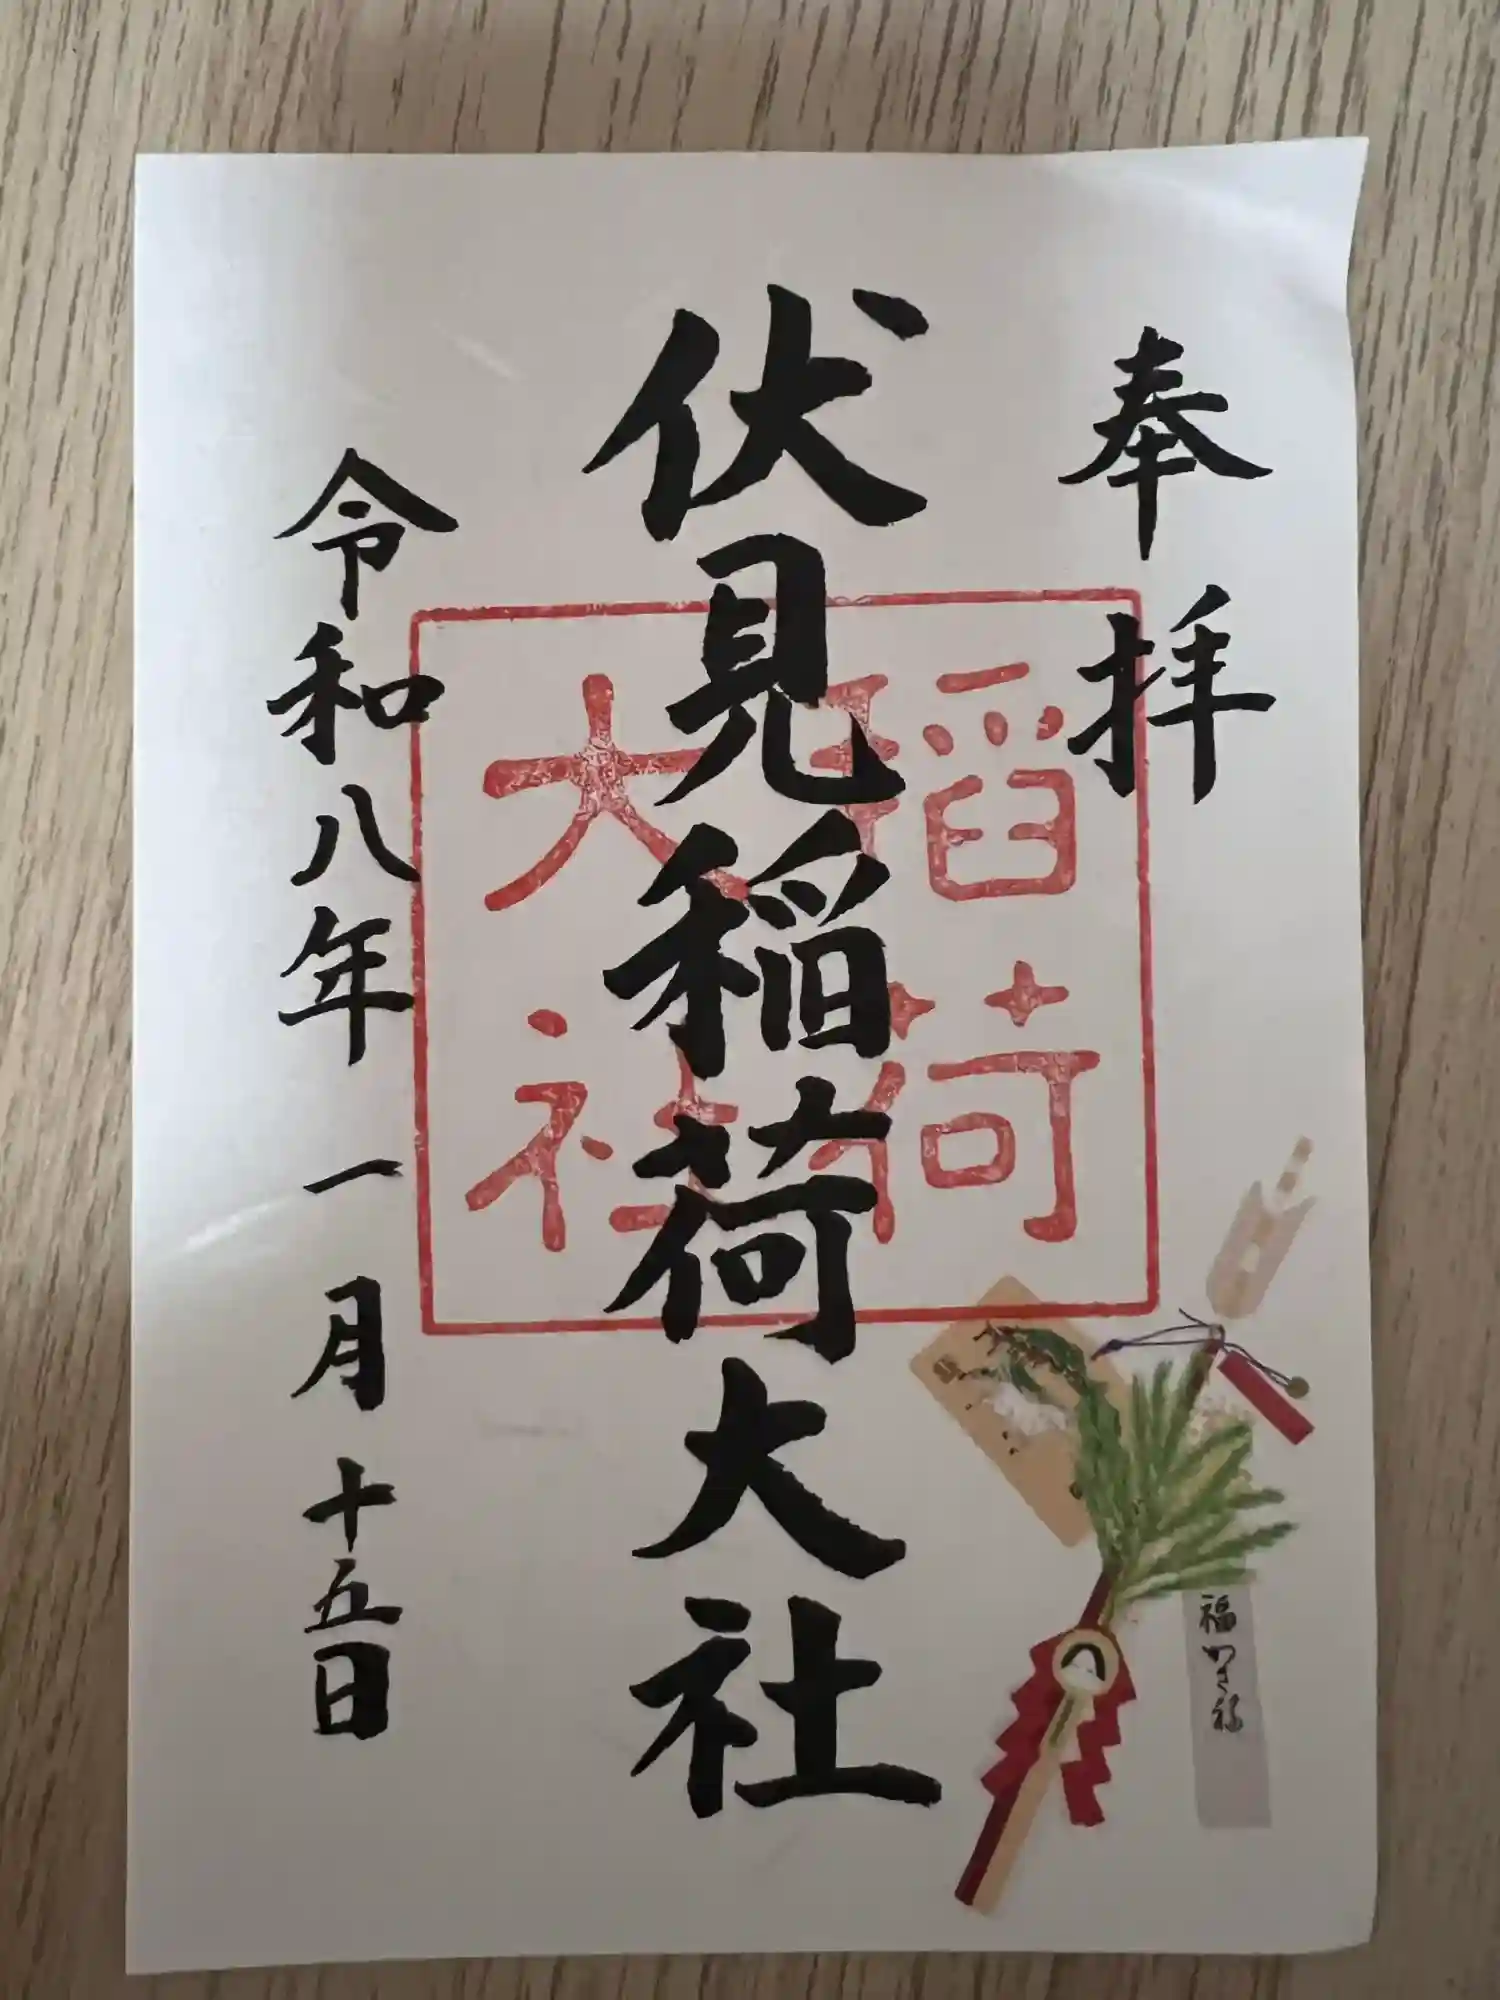 奉拝
伏見稲荷大社
稲荷
大社
令和八年一月十五日